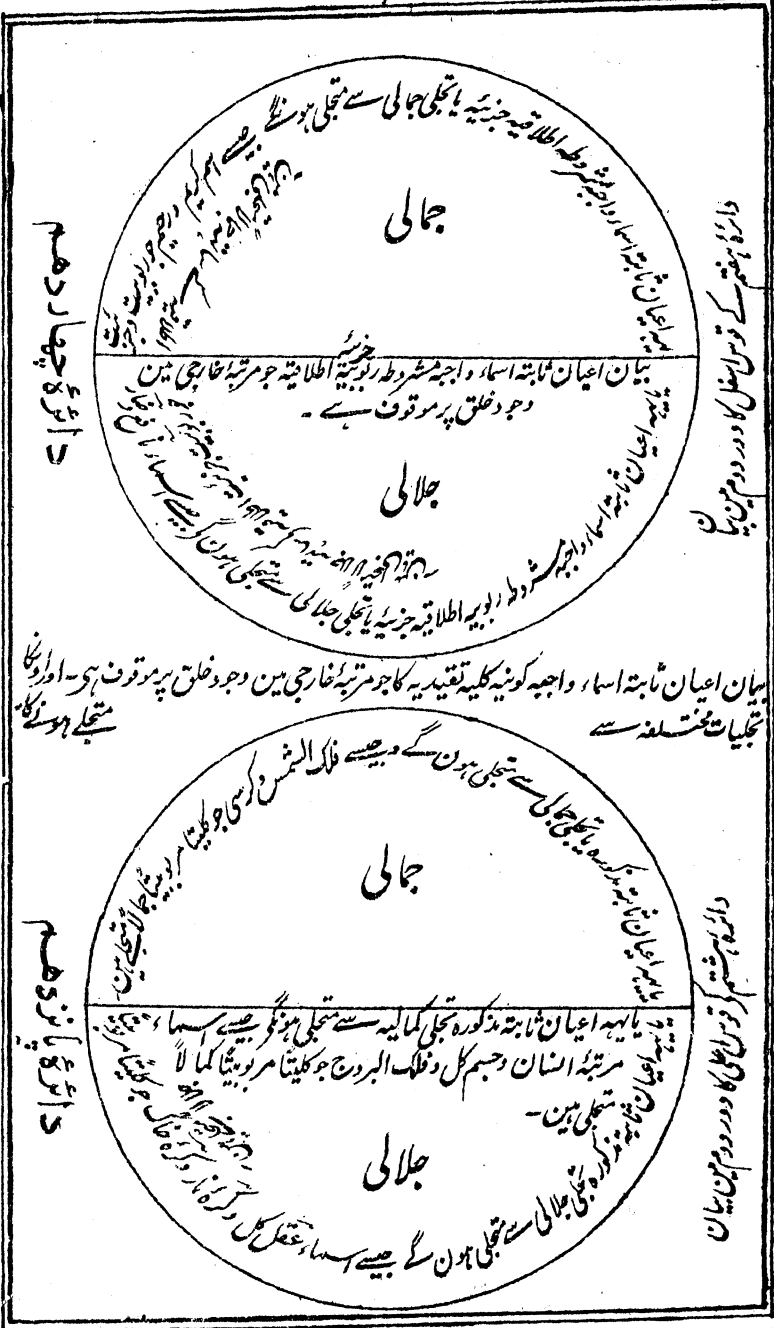 دائرۂ چہاردہم
دائرۂ ہفتم کے قوس اسفل کا دور دوم مین بیان
یہہ اعیان ثابتہ اسماء واجبہ مشروطہ اطلاقیہ جزئیہ یا تجلی جمالی سے متجلی ہونگے جیسے اسم کریم و رحیم جو ربوبیت
جمالی
بیان اعیان ثابتہ اسماء واجبہ مشروطہ ربوبیہ جزئیہ اطلاقیہ جو مرتبۂ خارجی مین
وجود خلق پر موقوف ہے ۔
جلالی
یا یہہ اعیان ثابتہ اسماء واجبہ مشروطہ ربوبیہ اطلاقیہ جزئیہ یا تجلی جلالی سے متجلی ہون گے جیسے اسماء
بیان اعیان ثابتہ اسماء واجبہ کونیہ کلیہ تقییدیہ کا جو مرتبۂ خارجی مین وجود خلق پر موقوف ہی ۔ اور اونکا
تجلیات مختلفہ سے متجلے ہونے کا ۔
دائرۂ پانزدہم
دائرہ ہشتم کے قوس اعلی کا دور دوم مین بیان
یا یہہ اعیان ثابتہ مذکورہ یا تجلی جمالی سے متجلی ہون گے جیسے فلک الشمس و کرسی جو کلیتا مربوبیتا جمالاً متجلے ہین ۔
جمالی
یا یہہ اعیان ثابتہ مذکورہ تجلی کمالیہ سے متجلی ہونگے جیسے اسماء
مرتبۂ انسان و جسم کل و فلک البروج جو کلیتا مربوبیتا کمالاً
متجلی ہین ۔
جلالی
یا یہہ اعیان ثابتہ مذکورہ تجلی جلالی سے متجلی ہون گے جیسے اسماء عقل کل و کرۂ نار و کرۂ خاک جو کلیتا مربوبیتا